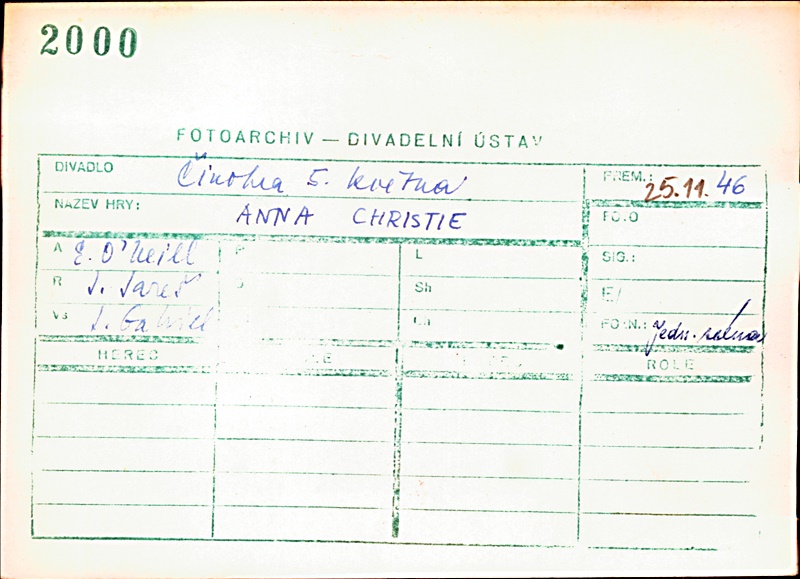 2000
FOTOARCHIV — DIVADELNÍ ÚSTAV
DIVADLO Činohra 5. května PREM.: 25.11.46
NÁZEV HRY: ANNA CHRISTIE FOTO
A E. O'Neill L SIG.:
R J. Jareš Sh E/
Vs J. Gabriel Ch FORN.: Jedn.
HEREC ROLE